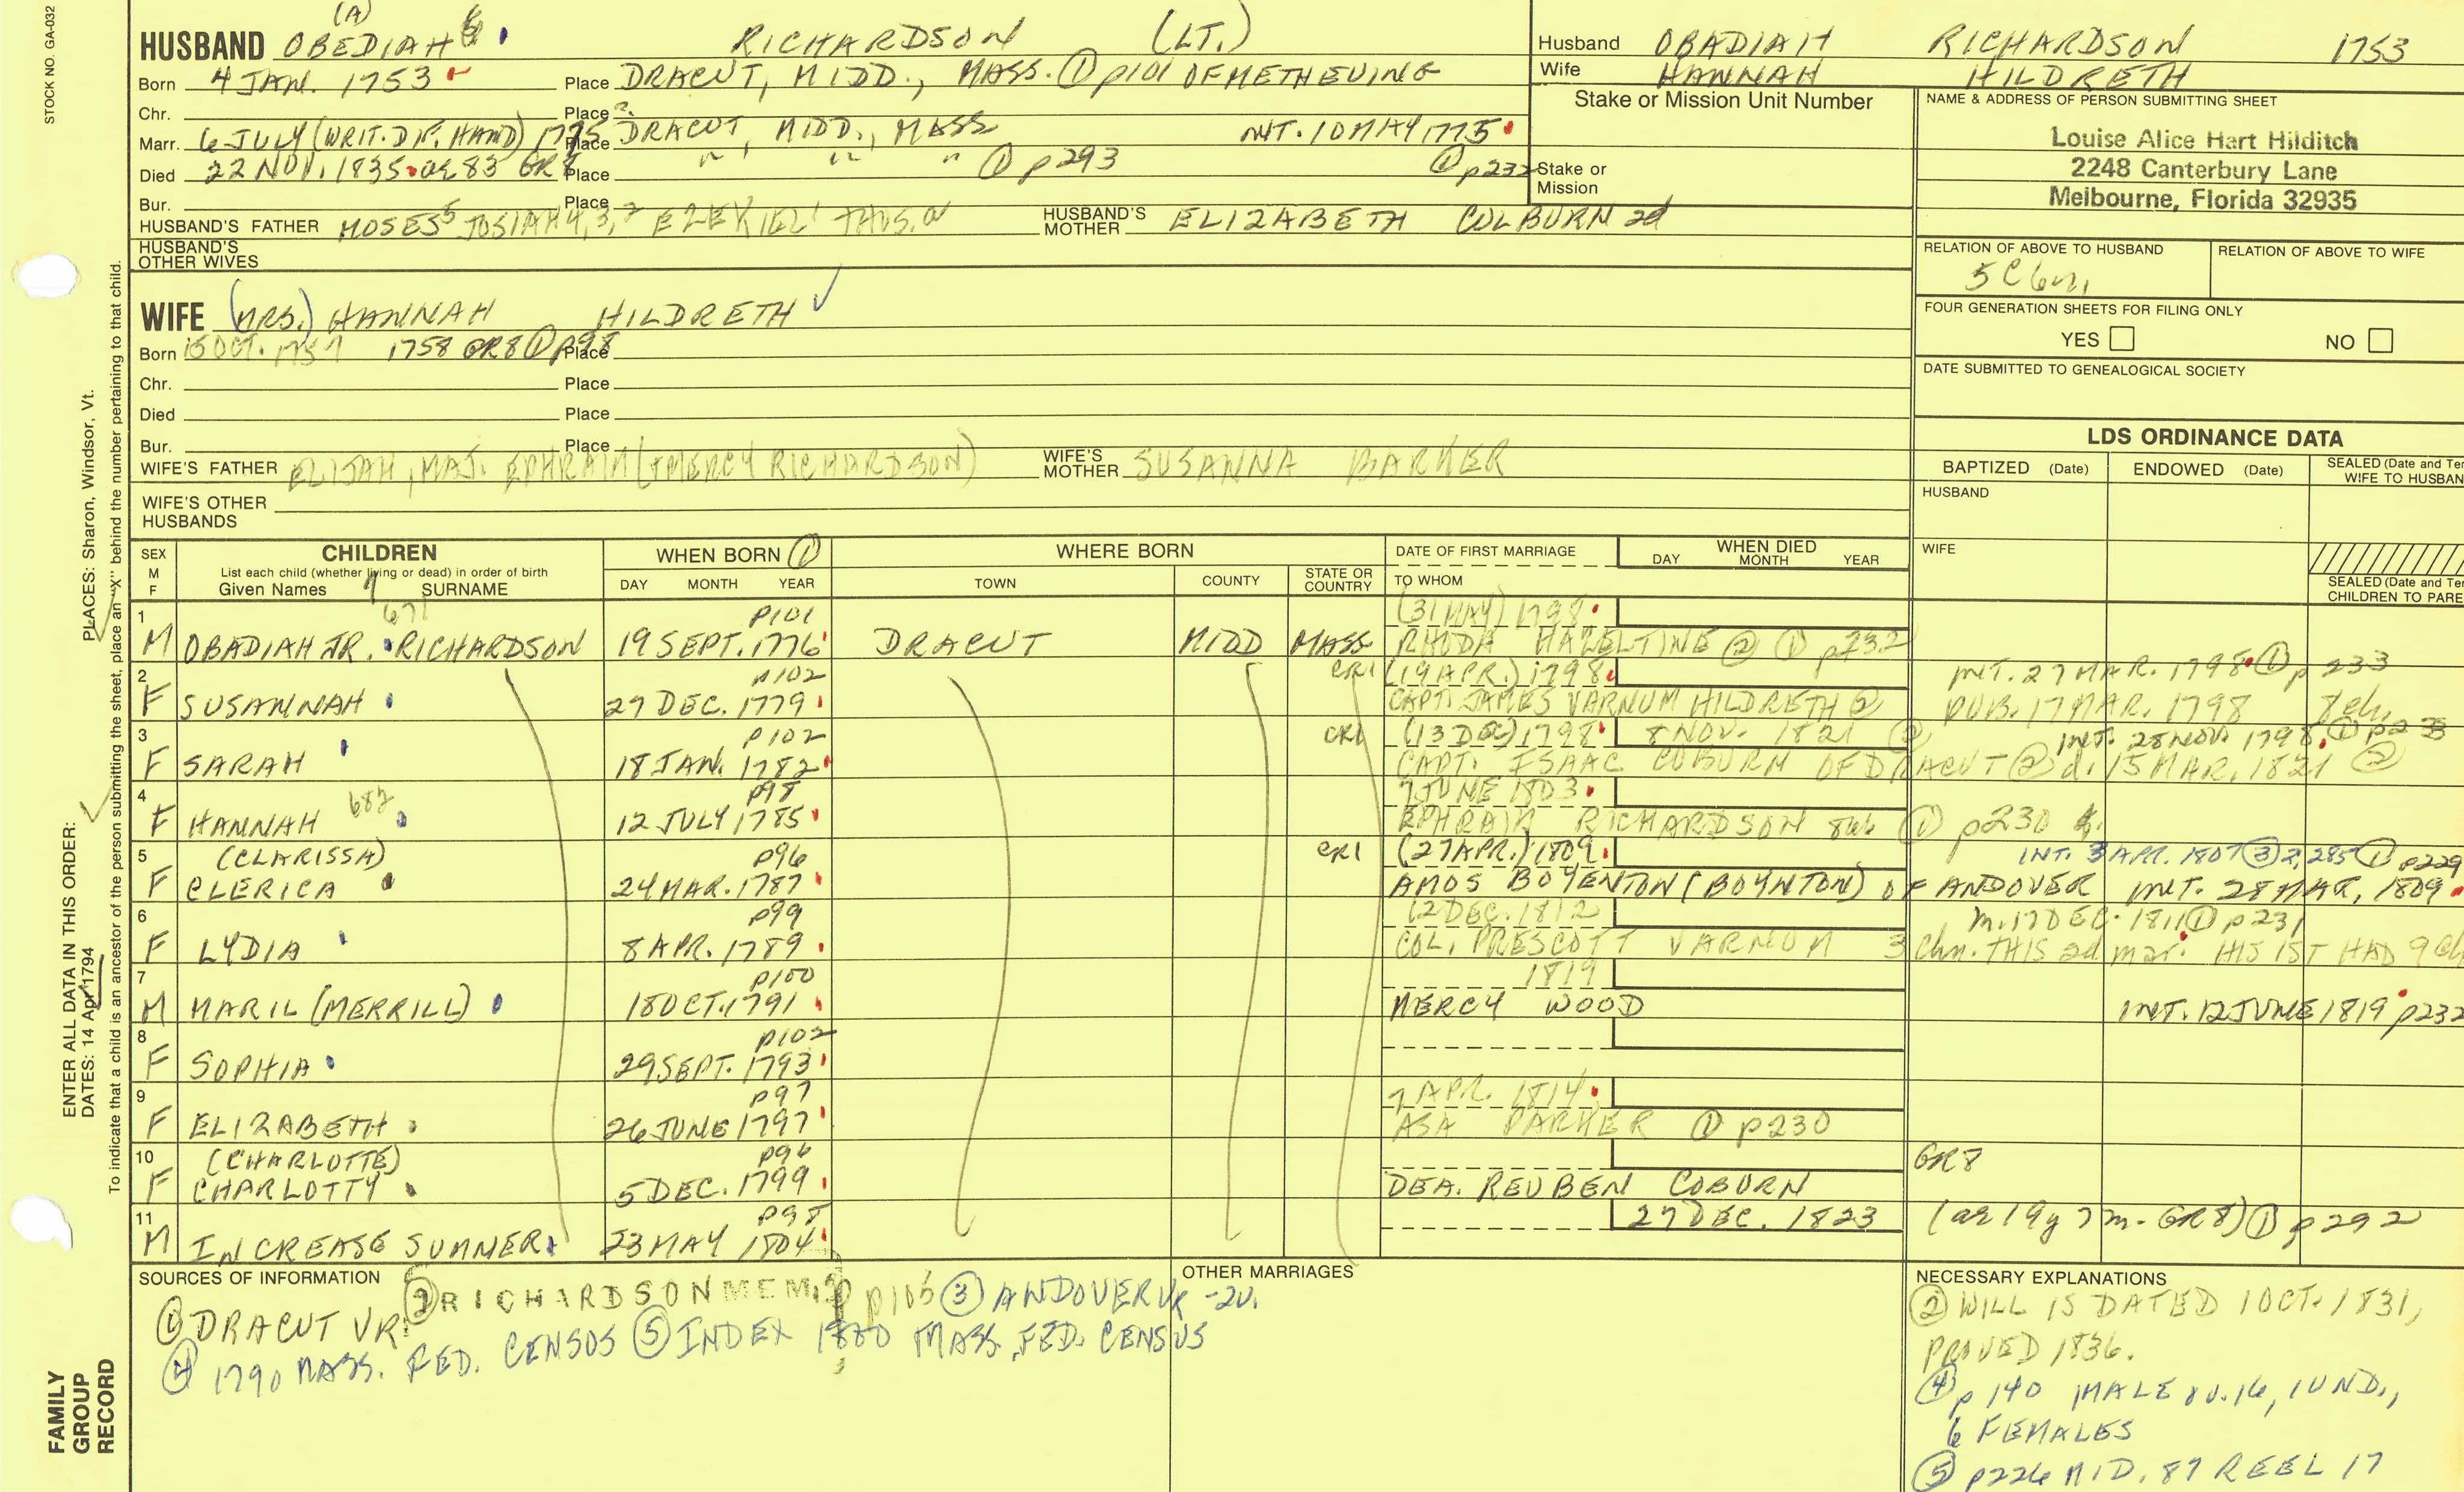 STOCK NO. GA-032
(A)
HUSBAND OBEDIAH RICHARDSON (LT.)
Born 4 JAN. 1753 Place DRACUT, MIDD., MASS. ① p101 OF METHEUING
Chr. Place
Marr. 6 JULY (WRIT. DIF. HAND) 1775 Place DRACUT, MIDD., MASS INT. 10 MAY 1775
Died 22 NOV. 1835 ae 83 GR8 Place " " " ① p293 ① p232
Bur. Place
HUSBAND'S FATHER MOSES5 JOSIAH 4,3,2 EZEKIEL1 THOS.a HUSBAND'S MOTHER ELIZABETH COLBURN 2d
HUSBAND'S OTHER WIVES
Husband OBADIAH RICHARDSON 1753
Wife HANNAH HILDRETH
Stake or Mission Unit Number
Stake or Mission
NAME & ADDRESS OF PERSON SUBMITTING SHEET
Louise Alice Hart Hilditch
2248 Canterbury Lane
Melbourne, Florida 32935
RELATION OF ABOVE TO HUSBAND RELATION OF ABOVE TO WIFE
5 C 6
FOUR GENERATION SHEETS FOR FILING ONLY
YES NO
DATE SUBMITTED TO GENEALOGICAL SOCIETY
WIFE (MRS.) HANNAH HILDRETH
Born 15 OCT. 1757 1758 GR8 ① p98 Place
Chr. Place
Died Place
Bur. Place
WIFE'S FATHER ELIJAH, MAJ. EPHRAIM (+MERCY RICHARDSON) WIFE'S MOTHER SUSANNA BARKER
WIFE'S OTHER HUSBANDS
LDS ORDINANCE DATA
BAPTIZED (Date) ENDOWED (Date) SEALED (Date and Te
WIFE TO HUSBAN
HUSBAND
WIFE
SEALED (Date and Te
CHILDREN TO PARE
SEX M F CHILDREN WHEN BORN ① WHERE BORN DATE OF FIRST MARRIAGE WHEN DIED
List each child (whether living or dead) in order of birth
Given Names SURNAME DAY MONTH YEAR TOWN COUNTY STATE OR COUNTRY TO WHOM DAY MONTH YEAR
1 671 p101 (31 MAY) 1798
M OBADIAH JR. RICHARDSON 19 SEPT. 1776 DRACUT MIDD MASS RHODA HAZELTINE ② ① p232
2 p102 CR1 (19 APR.) 1798 INT. 27 MAR. 1798 ① p 233
F SUSANNAH 27 DEC. 1779 CAPT. JAMES VARNUM HILDRETH ② PUB. 17 MAR. 1798 7 ch.
3 p102 CR1 (13 DEC) 1798 8 NOV. 1821 ② INT. 28 NOV. 1798 ①
F SARAH 18 JAN. 1782 CAPT. ISAAC COBURN OF DRACUT ② d. 15 MAR. 1821 ②
4 682 p98 7 JUNE 1803
F HANNAH 12 JULY 1785 EPHRAIM RICHARDSON 846 ① p230
5 (CLARISSA) p96 CR1 (27 APR.) 1809 INT. 3 APR. 1807 ③ 2,285 ① p229
F CLERICA 24 MAR. 1787 AMOS BOYENTON (BOYNTON) OF ANDOVER INT. 28 MAR. 1809
6 p99 12 DEC. 1812 m. 17 DEC. 1811 ① p231
F LYDIA 8 APR. 1789 COL. PRESCOTT VARNUM 3 chn. THIS 2d mar. HIS 1ST HAD 9 ch
7 p100 1819
M MARIL (MERRILL) 18 OCT. 1791 MERCY WOOD INT. 12 JUNE 1819 p232
8 p102
F SOPHIA 29 SEPT. 1793
9 p97 7 APR. 1814
F ELIZABETH 26 JUNE 1797 ASA PARKER ① p230
10 (CHARLOTTE) p96 GR8
F CHARLOTTY 5 DEC. 1799 DEA. REUBEN COBURN
11 p98 27 DEC. 1823 (ae 19y 7m - GR8) ① p292
M INCREASE SUMNER 23 MAY 1804
SOURCES OF INFORMATION
① DRACUT VR. ② RICHARDSON MEM. p105 ③ ANDOVER VR -2V.
④ 1790 MASS. FED. CENSUS ⑤ INDEX 1800 MASS. FED. CENSUS
OTHER MARRIAGES
NECESSARY EXPLANATIONS
② WILL IS DATED 1 OCT. 1831,
PROVED 1836.
④ p 140 1 MALE ov. 16, 1 UND.,
6 FEMALES
⑤ p226 MID. 87 REEL 17
PLACES: Sharon, Windsor, Vt.
ENTER ALL DATA IN THIS ORDER:
DATES: 14 Apr 1794
To indicate that a child is an ancestor of the person submitting the sheet, place an "X" behind the number pertaining to that child.
FAMILY
GROUP
RECORD